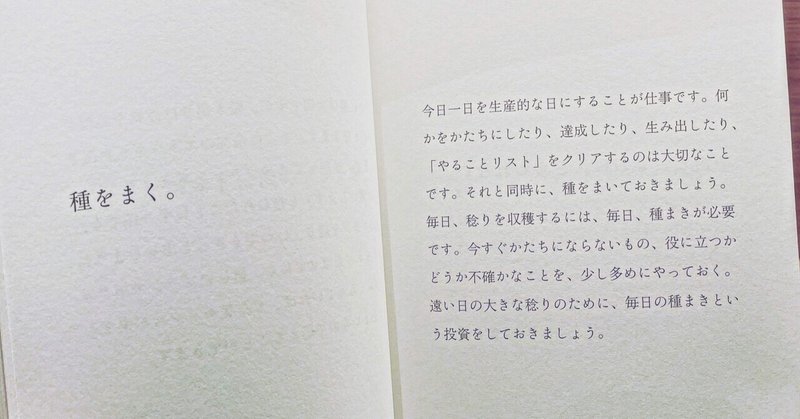 種をまく。
今日一日を生産的な日にすることが仕事です。何
かをかたちにしたり、達成したり、生み出したり、
「やることリスト」をクリアするのは大切なこと
です。それと同時に、種をまいておきましょう。
毎日、稔りを収穫するには、毎日、種まきが必要
です。今すぐかたちにならないもの、役に立つか
どうか不確かなことを、少し多めにやっておく。
遠い日の大きな稔りのために、毎日の種まきとい
う投資をしておきましょう。